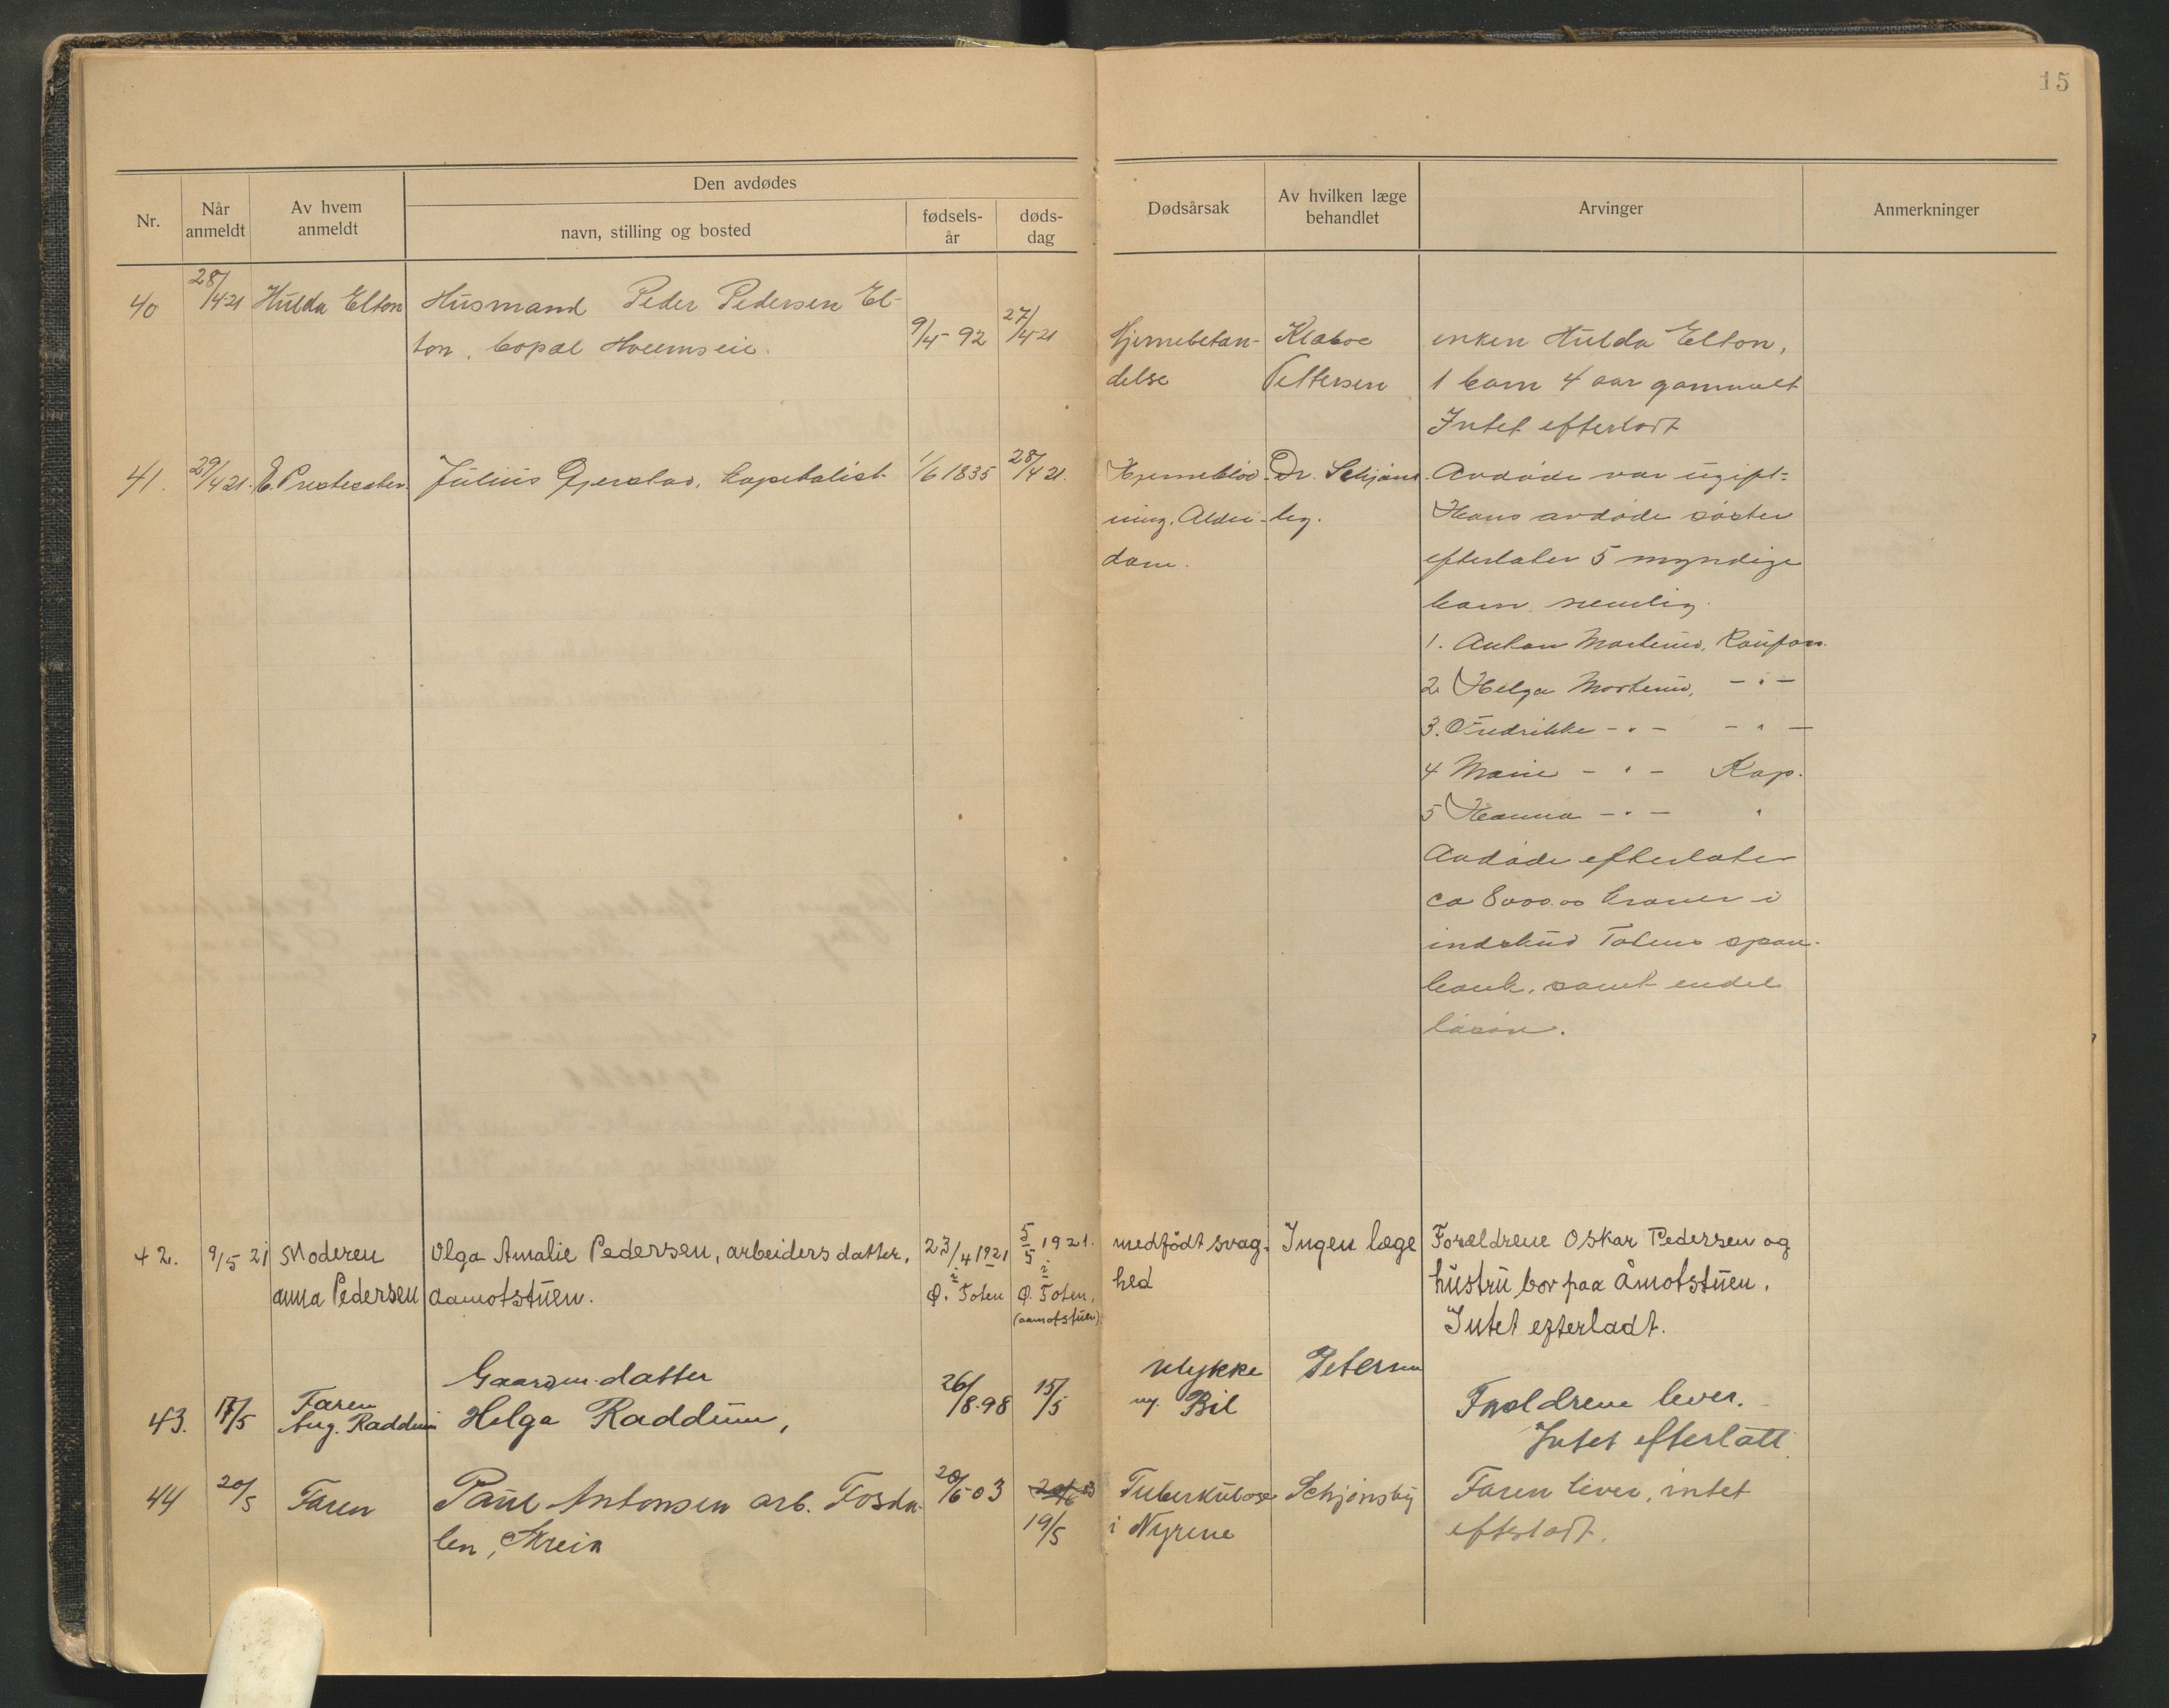 15
Den avdødes
Nr.
Når anmeldt
Av hvem anmeldt
navn, stilling og bosted
fødsels-år
døds-dag
Dødsårsak
Av hvilken læge behandlet
Arvinger
Anmerkninger
40
28/4 21
Hulda Elton
Husmand Peder Pedersen El-
ton, bopæl Hveemseie.
9/4 92
27/4 21
Hjernebetæn-
delse
Klaboe
Pettersen
enken Hulda Elton,
1 barn 4 aar gammelt
Intet efterladt
41.
29/4 21.
E. Prestesæter.
Julius Gjerstad, kapitalist
1/6 1835
28/4 21.
Hjerneblød-
ning, Alder-
dom.
Dr. Schjøns-
by.
Avdøde var ugift.
Hans avdøde søster
efterlater 5 myndige
barn nemlig
1. Anton Raufoss.
2. Helga -"-
3. Fredrikke -"- -"-
4 Marie -"- Kap.
5 Hanna -"- "
Avdøde efterlater
ca 8000.00 kroner i
indskud Totens spare-
bank, samt endel
løsøre.
42.
9/5 21
Moderen
Anna Pedersen
Olga Amalie Pedersen, arbeiders datter,
Aamotstuen.
23/4 1921
i
Ø. Toten
5/5 1921.
i
Ø. Toten,
(Aamotstuen)
medfødt svag-
hed
Ingen læge
Forældrene Oskar Pedersen og
hustru bor paa Åmotstuen.
Intet efterladt.
43.
17/5
Faren
Aug. Raddum
Gaardm. datter
Helga Raddum,
26/8.98
15/5
Ulykke
Bil
Petersen
Forældrene lever.
Intet efterlatt
44
20/5
Faren
Paul Antonsen arb. Fosda-
len, Kreia
20/6 03
19/5
Tuberkulose
i Nyrene
Schjønsby
Faren lever, intet
efterladt.